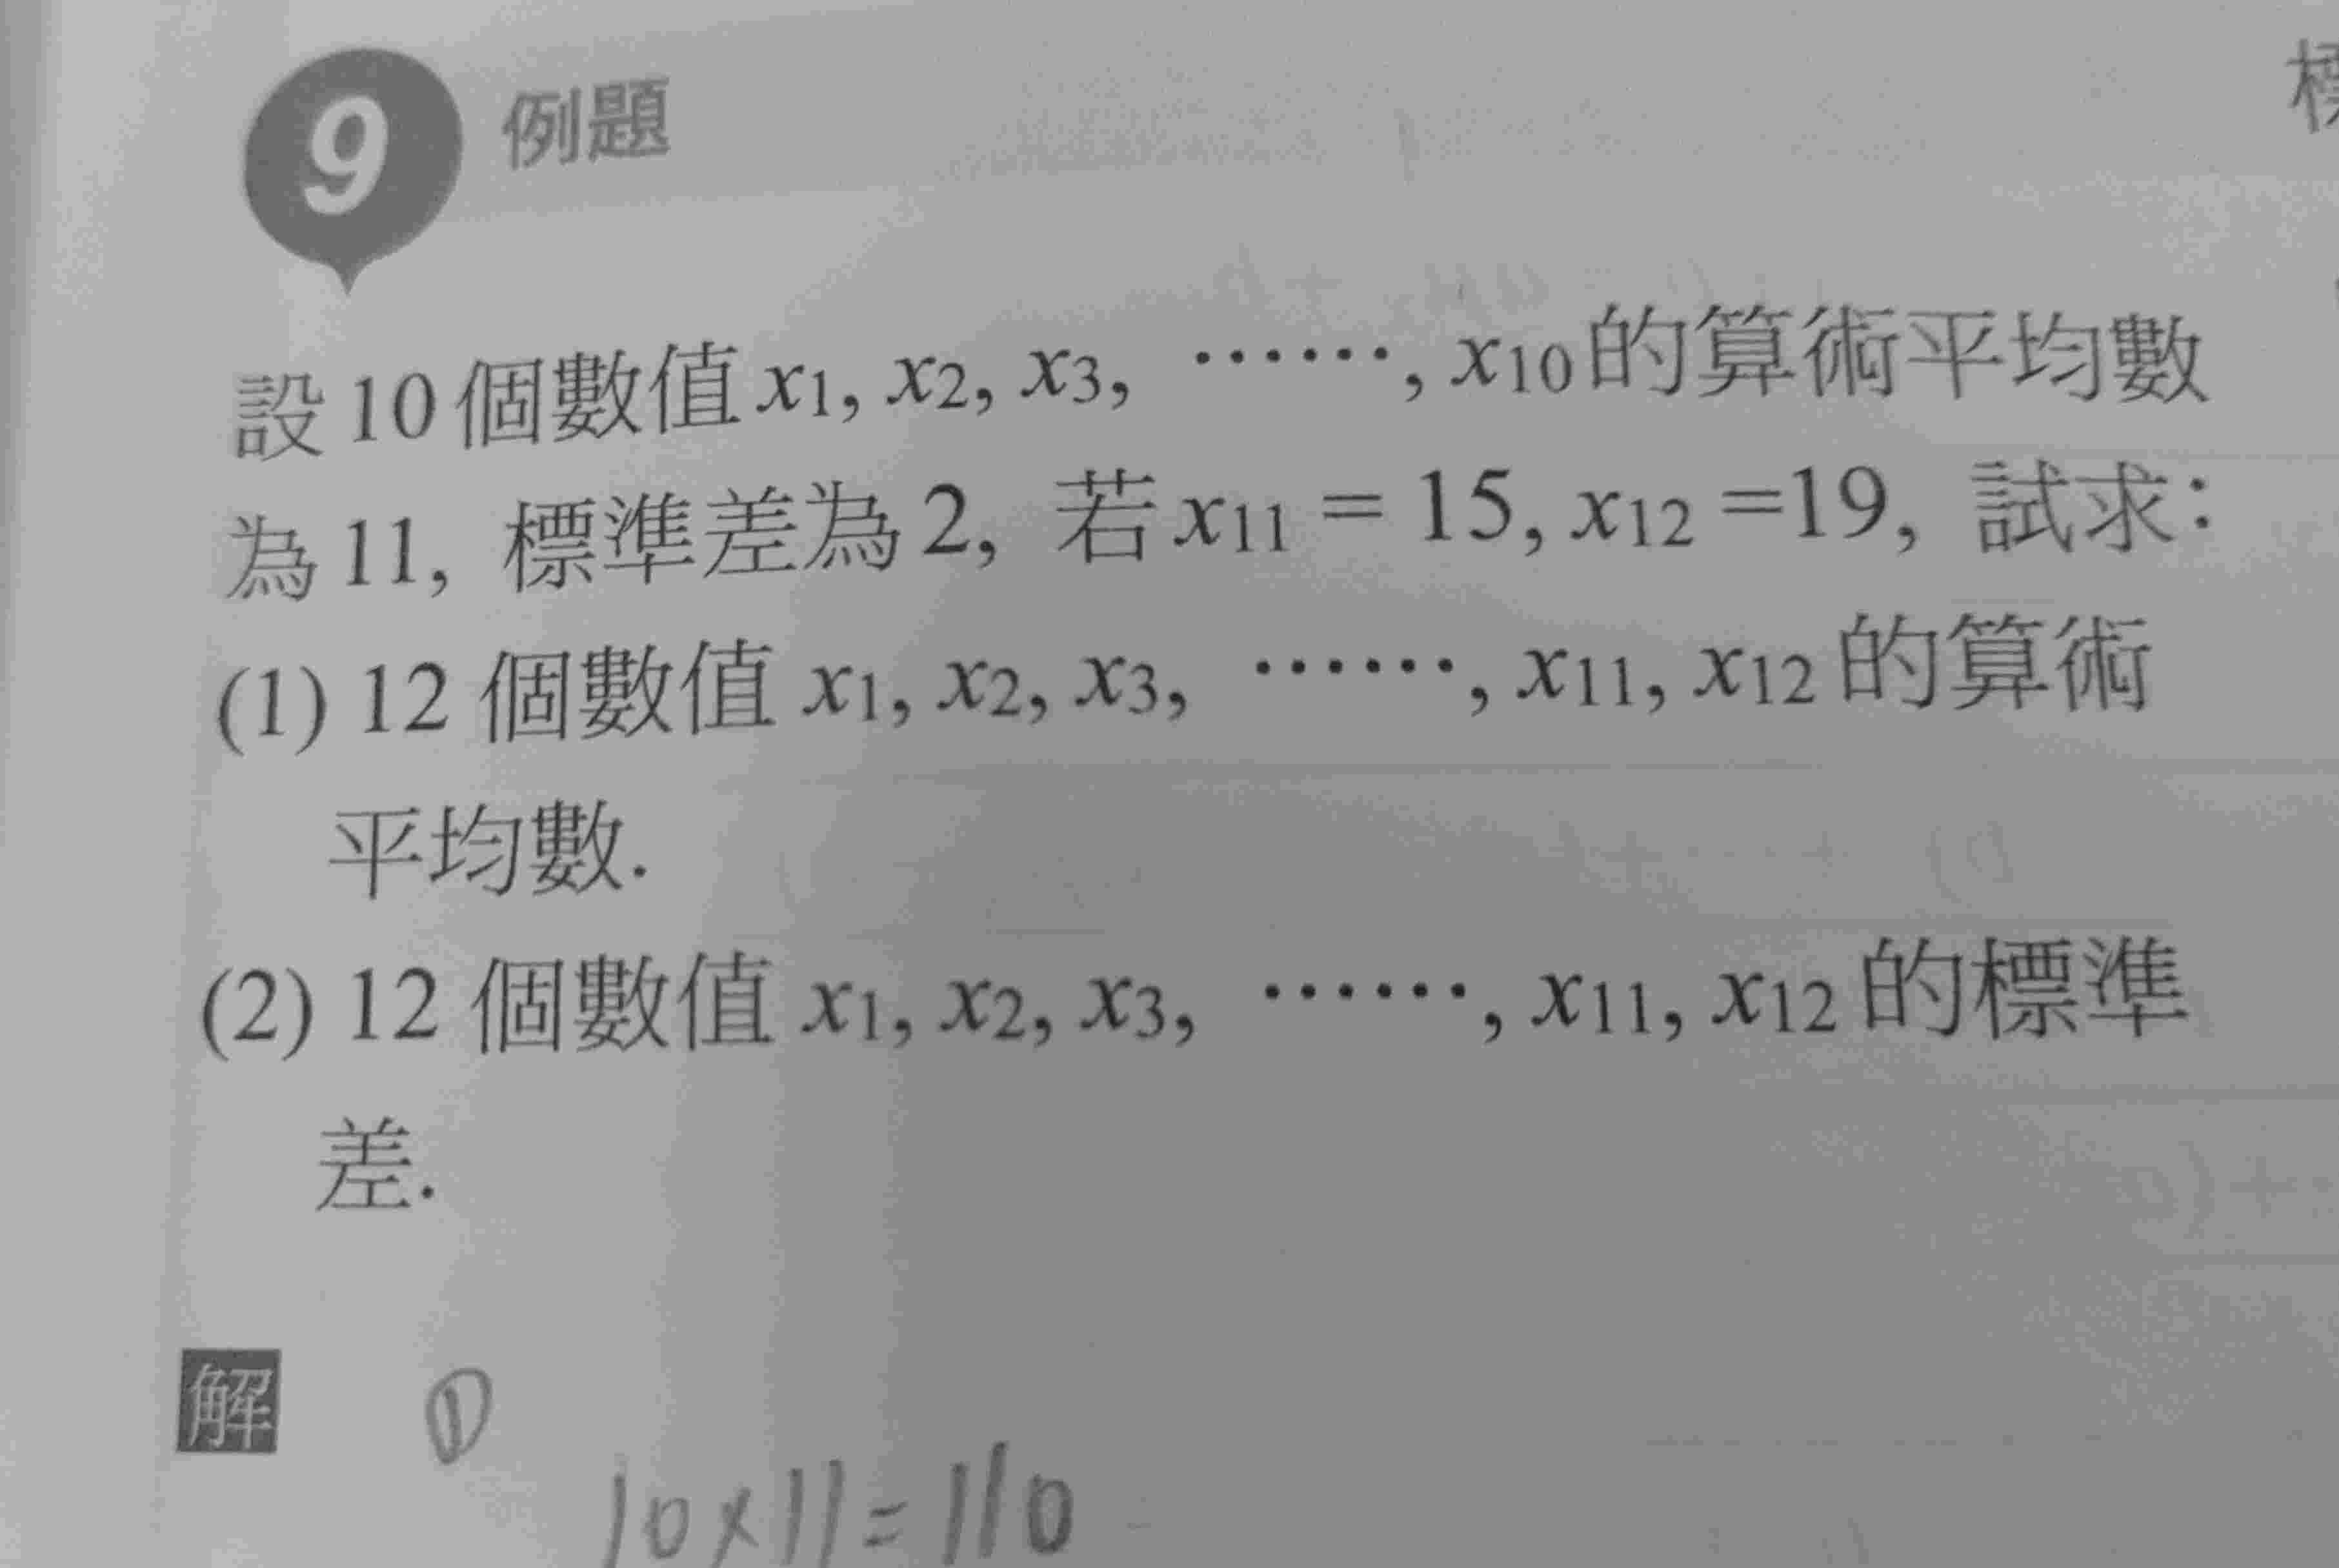 9 例題
設10個數值x₁, x₂, x₃, ……, x₁₀的算術平均數
為11, 標準差為2, 若x₁₁ = 15, x₁₂ =19, 試求:
(1) 12 個數值 x₁, x₂, x₃, ……, x₁₁, x₁₂ 的算術
平均數.
(2) 12 個數值 x₁, x₂, x₃, ……, x₁₁, x₁₂ 的標準
差.
解 ①
10×11=110